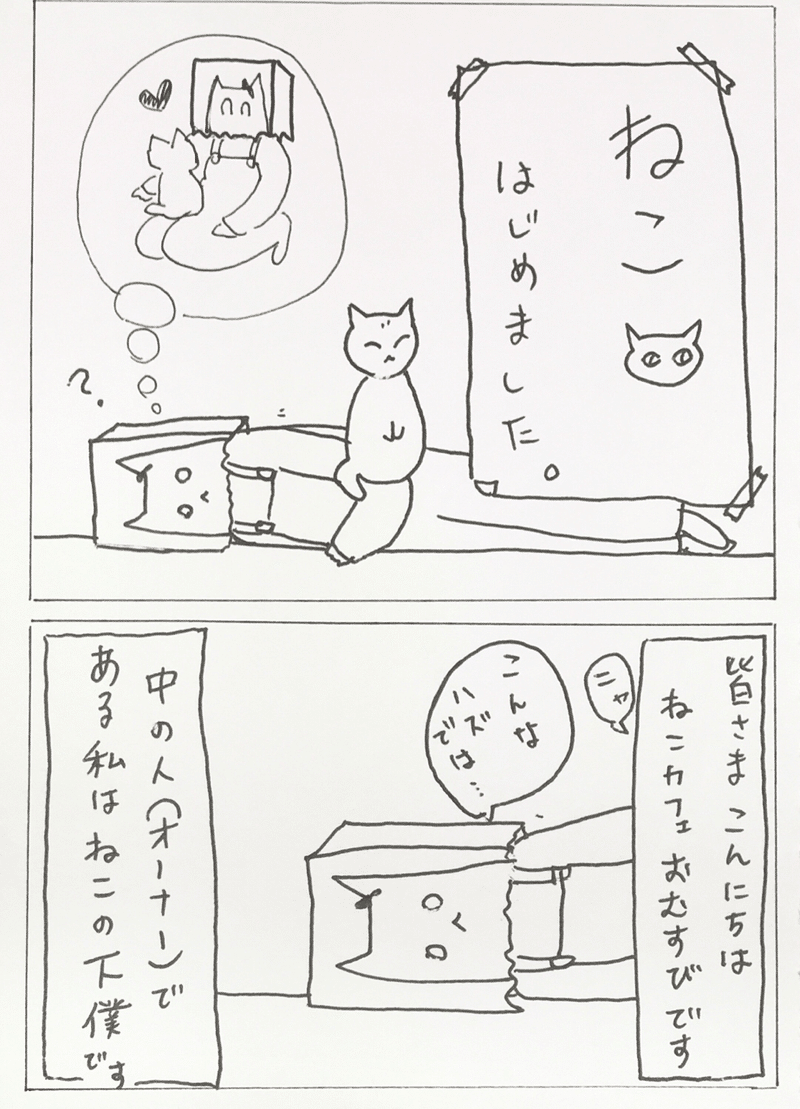 ねこ
はじめました。
?
皆さま こんにちは
ねこカフェ おむすびです
ニャ
こんな
ハズ
では…
中の人(オーナー)で
ある私はねこの下僕です